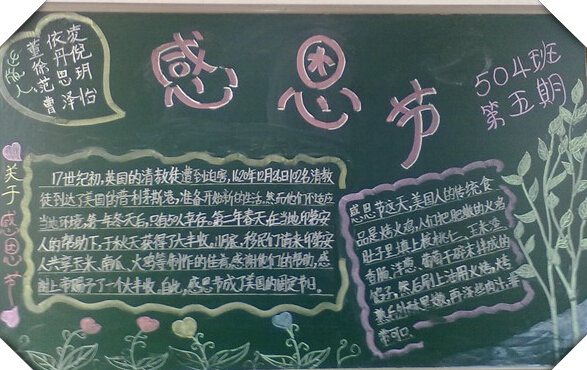 感恩节
504班
第五期
出版人
董 依 凌
徐 丹 倪
范 思 玥
曹 泽 怡
关于感恩节
17世纪初,英国的清教徒遭到迫害,1620年12月 102名清教
徒到达了美国的普利茅斯港,准备开始新的生活.然而他们不适应
当地环境,第一年冬天后,只有50人幸存。第二年春天在当地印第安
人的帮助下,于秋天获得了大丰收。 移民们
人共享玉米、南瓜、火鸡等制作的佳肴,感谢他们的帮助,感
谢上帝赐予了一个大丰收。自此,感恩节成了美国的固定节日。
感恩节这天,美国人的传统食
品是烤火鸡,人们把肥嫩的火鸡
肚子里填上核桃仁、玉米渣
香肠、洋葱、葡萄干
然后刷上油用火烤,烤
常可口